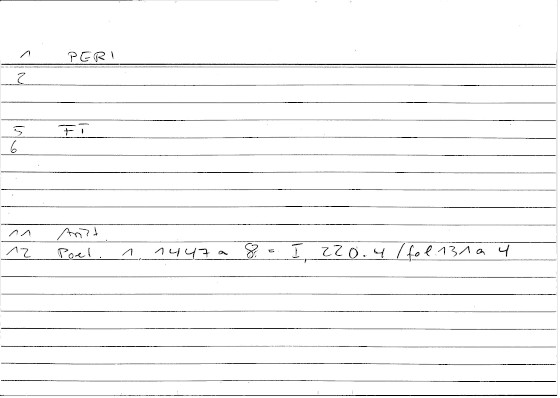 1 PERI
2
5 FI
6
11 Arist.
12 Poet. 1. 1447 a 8 = I, 220.4 / fol 131 a 4